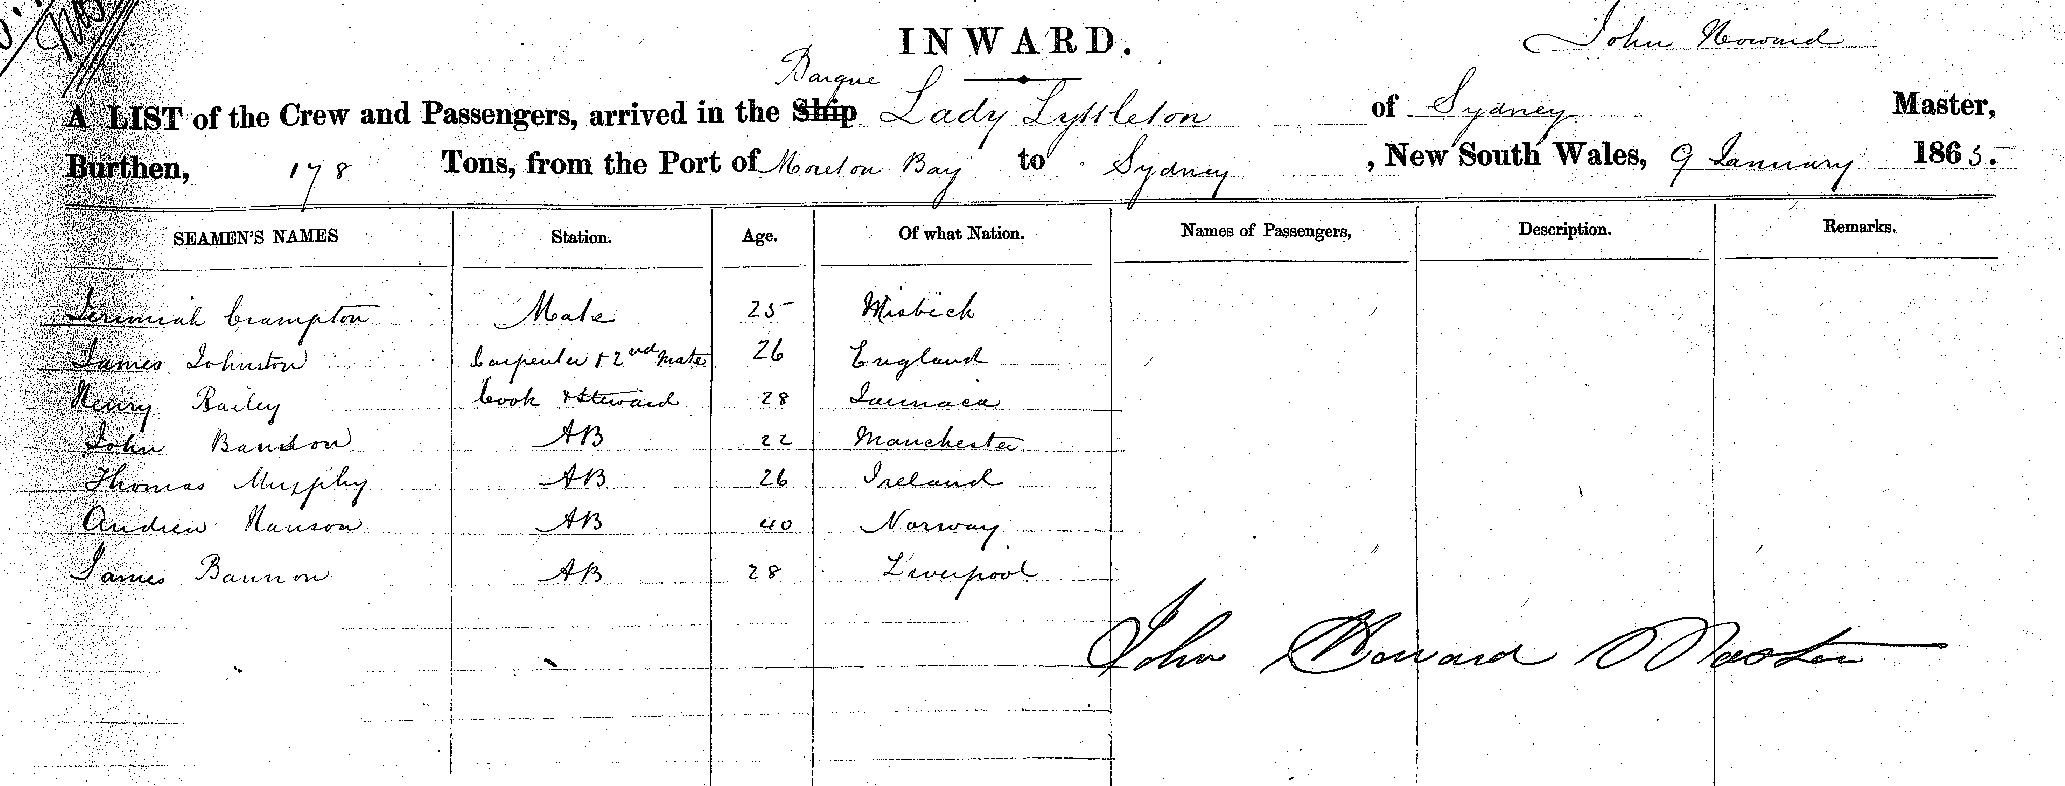 INWARD.
John Howard
Barque
A LIST of the Crew and Passengers, arrived in the Ship Lady Lyttleton of Sydney Master,
Burthen, 178 Tons, from the Port of Moreton Bay to Sydney, New South Wales, 9 January 1865.
SEAMEN'S NAMES Station. Age. Of what Nation. Names of Passengers, Description. Remarks.
Jerimiah Crampton Mate 25 Wisbick
James Johnston Carpenter & 2nd Mate 26 England
Henry Bailey Cook & Steward 28 Jamaica
John AB 22 Manchester
Thomas Murphy AB 26 Ireland
Andrew Hanson AB 40 Norway
James Bannon AB 28 Liverpool
John Howard Master